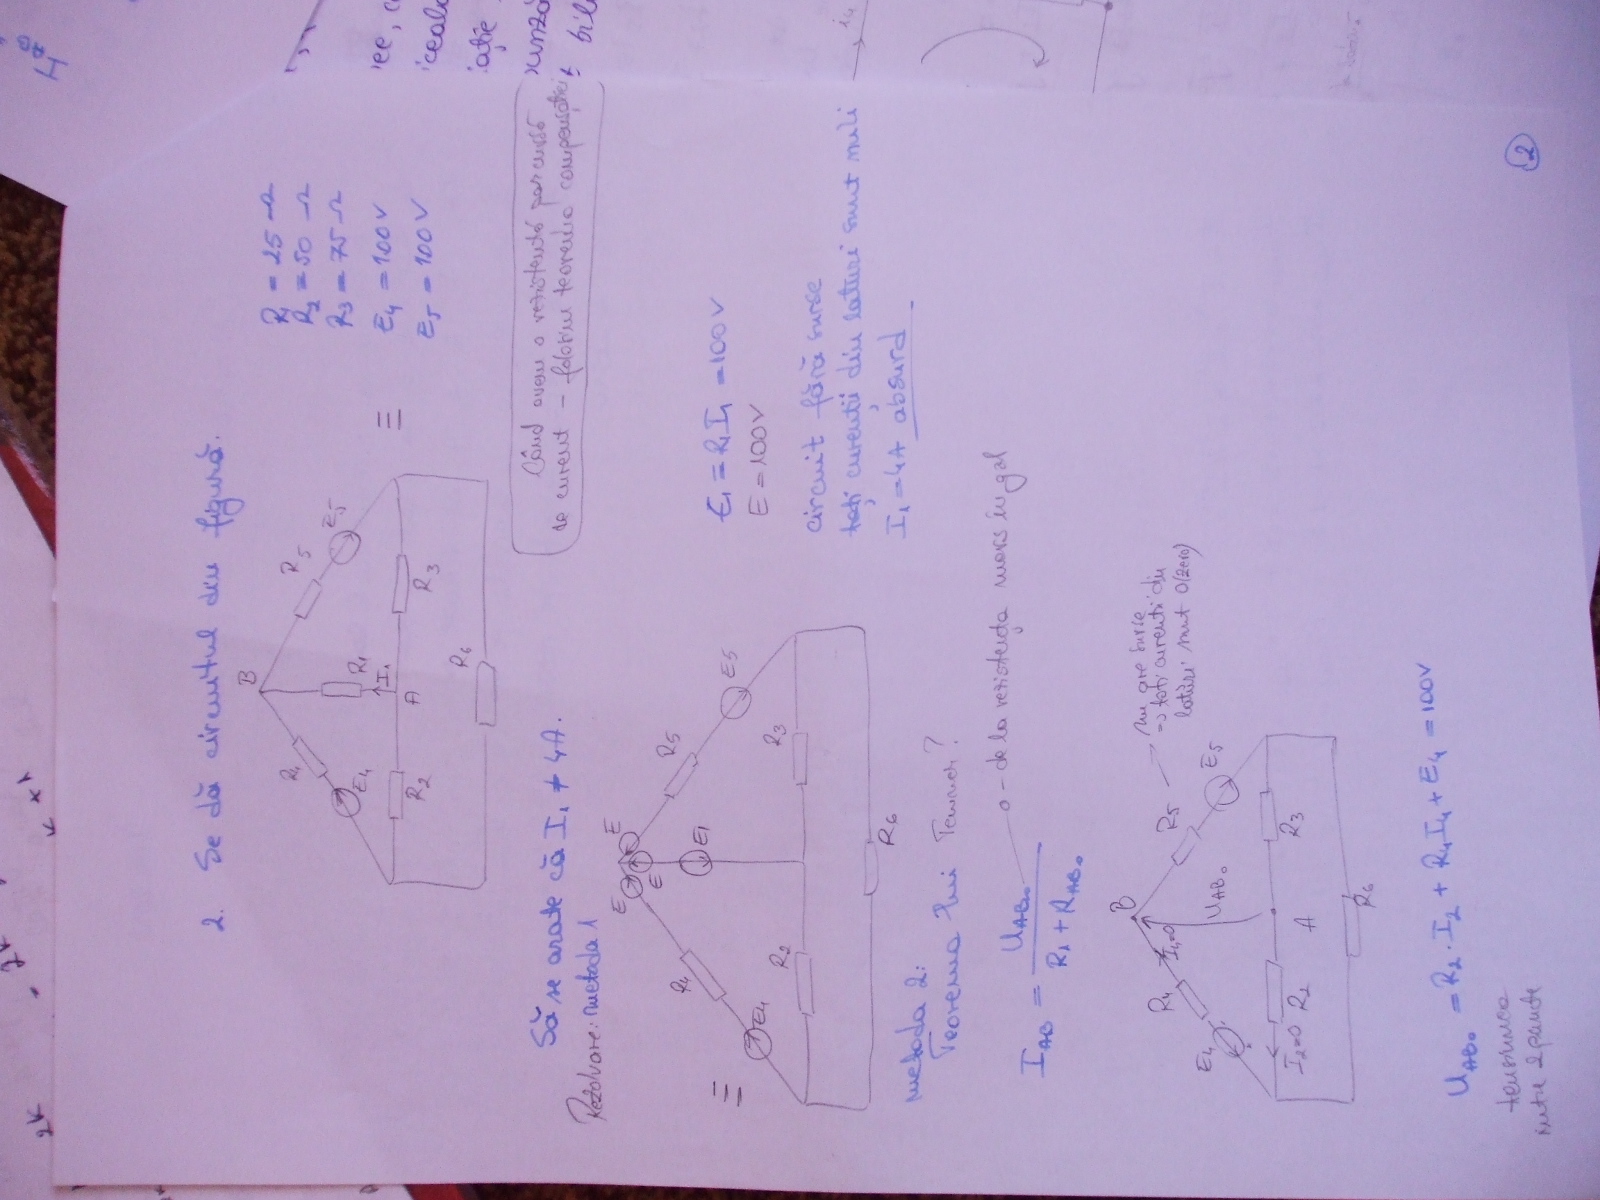 2k
= 2k
k + 1
I AB =
2. Se dă circuitul din figură.
B
R4
R5
E4
E5
R1
I1
R2
A
R3
R6
≡
R1 = 25 Ω
R2 = 50 Ω
R3 = 75 Ω
E4 = 100V
E5 = 100V
Să se arate că I1 ≠ 4A.
Când avem o rezistență parcursă
de curent – folosim teorema compensației
Rezolvare: metoda 1
E E
E
R4
R5
E1
E4
E5
≡
R2
R3
R6
E1 = R1 I1 = 100V
E = 100V
circuit fără surse
toți curenții din laturi sunt nuli
I1 = 4A absurd
metoda 2:
Teorema lui ?
I AB = U AB0 / R1 + R AB0
0 – de la rezistența mers în gol
B
R4
I4=0
R5
nu are surse
=> toți curenții din
laturi sunt 0(zero)
E4
U AB0
E5
I2=0
R2
A
R3
R6
U AB0 = R2 · I2 + R4 I4 + E4 = 100V
tensiunea
între 2 puncte
2